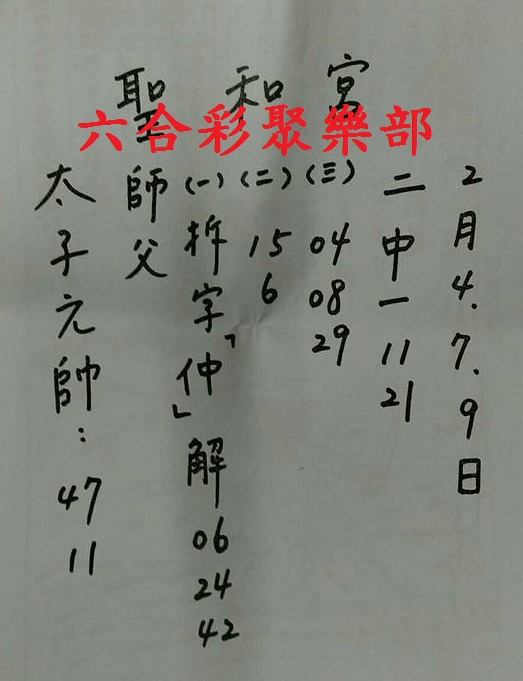 聖和宮
六合彩聚樂部
2月4.7.9日
二中一 11 21
(三) 04 08 29
(二) 15 6
(一) 拆字「仲」解 06 24 42
師父
太子元帥: 47 11